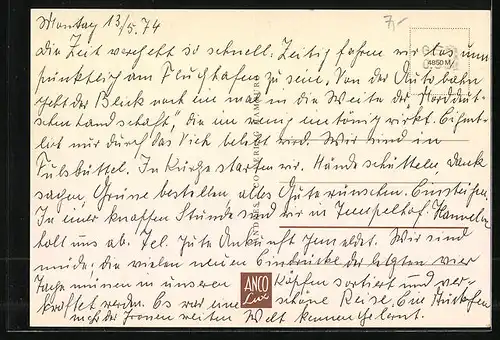 Montag 13/5.74
7,-
4850 M
Die Zeit vergeht so schnell. Zeitig fahren wir los, um
pünktlich am Flughafen zu sein. Von der Autobahn
geht der Blick noch ein mal in die Weite der Norddeut-
schen Landschaft, die ein wenig eintönig wirkt. Eigent-
lich nur durch das Vieh belebt wird. Wir sind in
Fulsbüttel. In Kürze starten wir. Hände schütteln, Dank
sagen, Grüsse bestellen, alles Gute wünschen. Einsteigen.
In einer knappen Stunde sind wir in Tempelhof. Hannelore
holt uns ab. Tel. gute Ankunft gemeldet. Wir sind
müde, die vielen neuen Eindrücke der letzten vier
Tage müssen in unseren Köpfen sortiert und ver-
kraftet werden. Es war eine schöne Reise. Ein Stückchen
nach der grossen weiten Welt kennengelernt.
ANCO
Lux